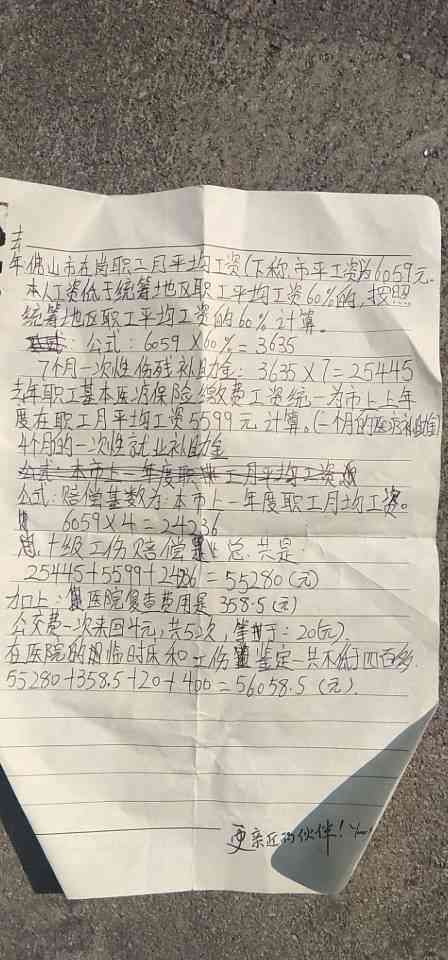 去
年佛山市在岗职工月平均工资(下称市平工资)为6059元.
本人工资低于统筹地区职工平均工资60%的,按照
统筹地区职工平均工资的60%计算。
公式:6059×60%=3635
7个月一次性伤残补助金:3635×7=25445
去年职工基本医疗保险缴费工资统一为市上上年
度在职工月平均工资5599元计算。(一个月的医疗补助金)
4个月的一次性就业补助金
公式:本市上一年度职工月平均工资
公式:赔偿基数为:本市上一年度职工月均工资。
6059×4=24236
总:十级工伤赔偿总共是:
25445+5599+24236=55280(元)
加上:医院复查费用是358.5(元)
公交费一次来回4元,共5次,等于:20(元).
在医院的临时床和工伤鉴定一共不低于四百多.
55280+358.5+20+400=56058.5(元).
更亲近的伙伴!